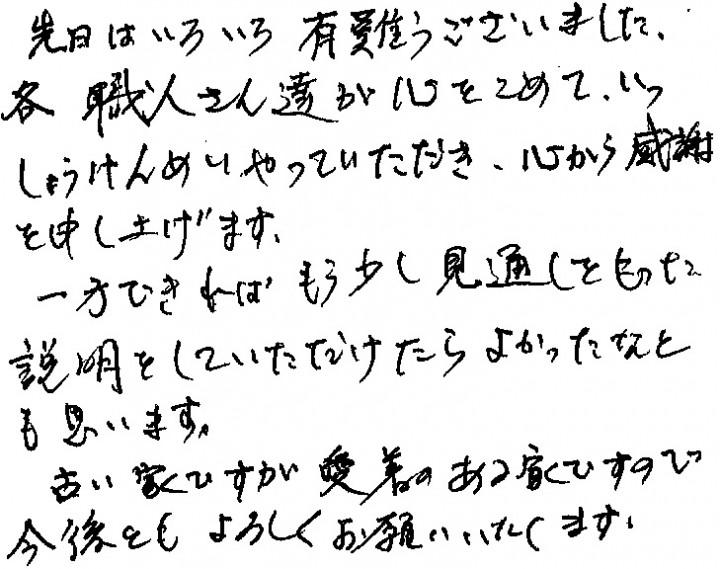 先日はいろいろ有難うございました、
各職人さん達が心をこめて、いっ
しょうけんめいやっていただき、心から感謝
を申し上げます、
一方できればもう少し見通しをもった
説明をしていただけたらよかったなと
も思います。
古い家ですが愛着のある家ですので
今後ともよろしくお願いいたします。